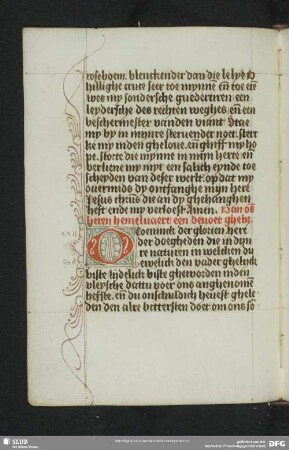 roseboem. blenckender dan die lelye O
hillighe cruce seer toe mynnē eñ toe eēr
wes my sondersche guedertiren een
leydersche des rechten weghes. eñ een
beschermster vanden viant Stae
my by in mynre steruender noet. sterc
ke my inden gheloue. eñ ghyff my ho
pe. storte die mynne in myn herte en
verliene my myt een salich eynde toe
scheyden van deser werlt. op dat my
ouermids dy ontfanghe mijn here
Jesus christus die an dy ghehanghen
heft ende my verloest Amen. Van ōs
heren hemeluaert een deuoet ghebz.
O coninck der glorien here
der doegheden die in dyn
re naturen in welcken du
ewelick den vader ghelyck
biste tydelick biste gheworden inden
vleysche dattu voer ons anghenome
hefste. eñ du onschuldich heuest ghele
den den alre bittersten doet om ons so
SLUB
DFG